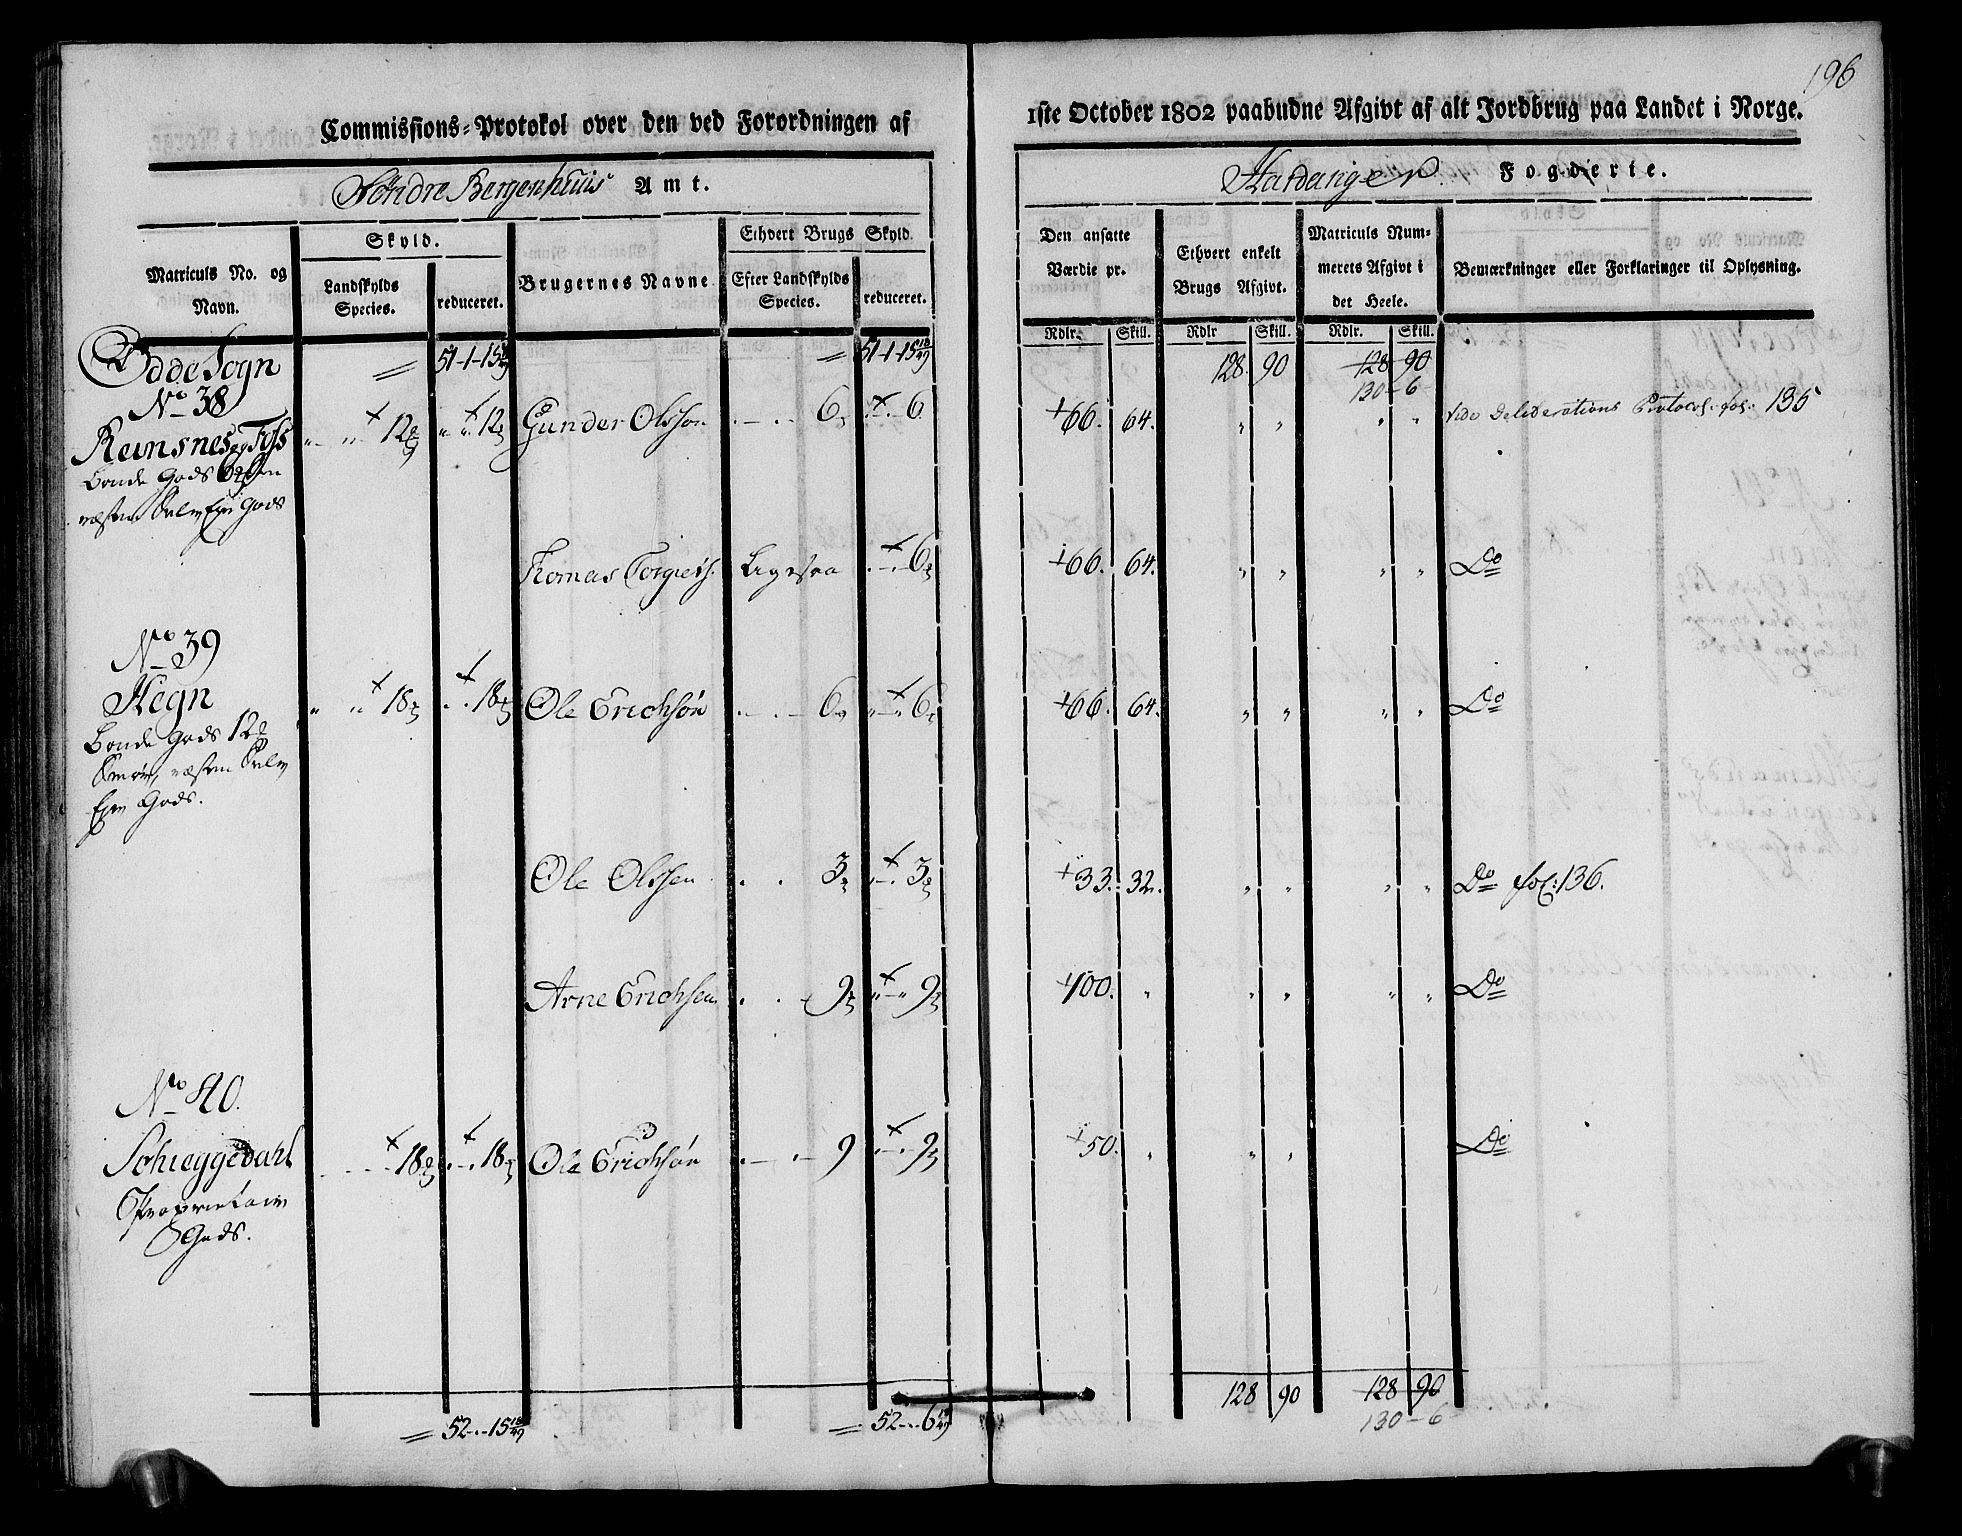 196
Commissions-Protokol over den ved Forordningen af 1ste October 1802 paabudne Afgivt af alt Jordbrug paa Landet i Norge.
Söndre Bergenhuus Amt. Hardanger Fogderie.
Matriculs No. og Navn.
Skyld.
Landskylds Species.
reduceret.
Brugernes Navne
Ethvert Brugs Skyld.
Efter Landskylds Species.
reduceret.
Den ansatte Værdie pr.
Ethvert enkelt Brugs Afgivt.
Matriculs Nummerets Afgivt i det Heele.
Bemærkninger eller Forklaringer til Oplysning.
Rdlr. Skill. Rdlr Skill. Rdlr. Skill.
Odde Sogn = 51-1-15 18/49 = 51-1-15 18/49 128. 90 128 90
130-6-
No 38
Reinsnes og Tÿss 12 12 Gunder Olsson 6 6. 66. 64. " " " " vide Deliberations Protocol. fol. 135
Bonde Gods
næsten Selv Ejer Gods
Tomas Torgiels. Ligesaa 6 66. 64. " " " " Do
No 39
Hegn " " 18 18 Ole Erichsön 6 6 66. 64. " " " " Do
Bonde Gods 12
Smör, næsten Selv
Ejer Gods.
Ole Olssen 3 3 33. 32. " " " " Do fol: 136.
Arne Erichsen 9 9 100. " " " " " Do
No 40.
Schieggedahl 18 18 Ole Erichsön 9 9 50. " " " Do
Proprietair
Gods.
128 90 128 90
= 52-"-15 18/49 = 52-"-6 18/49 130-6-